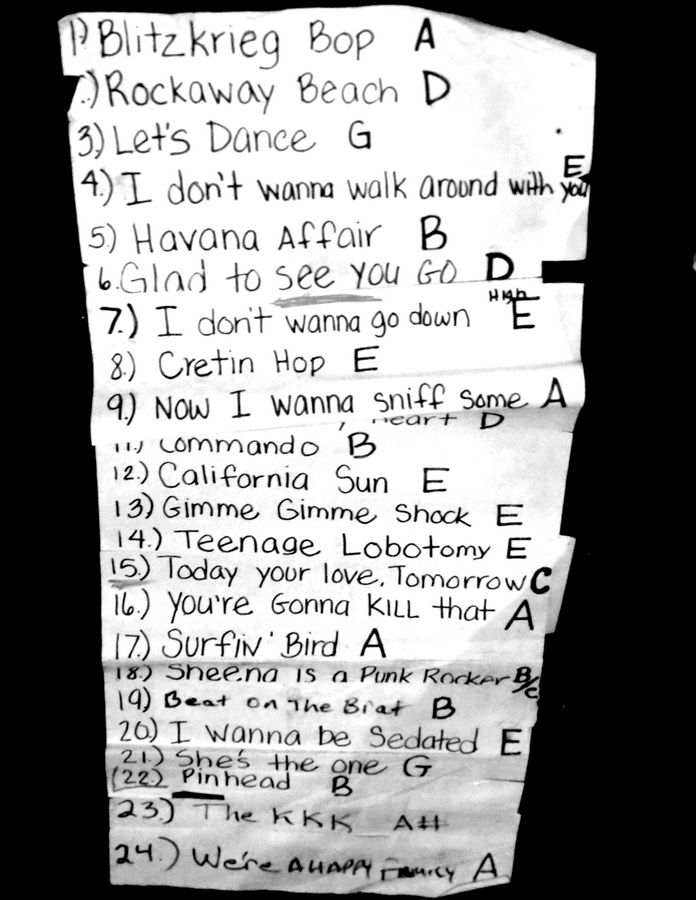 1) Blitzkrieg Bop A
.) Rockaway Beach D
3) Let's Dance G
4.) I don't wanna walk around with you E
5.) Havana Affair B
6. Glad to see you GO D
7.) I don't wanna go down High E
8.) Cretin Hop E
9.) Now I wanna sniff some A
heart D
11.) Commando B
12.) California Sun E
13) Gimme Gimme Shock E
14.) Teenage Lobotomy E
15.) Today your love, Tomorrow C
16.) you're Gonna KILL that A
17.) Surfin' Bird A
18.) Sheena is a Punk Rocker B/C
19) Beat on The Brat B
20) I wanna be Sedated E
21.) She's the one G
(22.) Pinhead B
23.) The KKK A#
24.) We're A HAPPY Family A